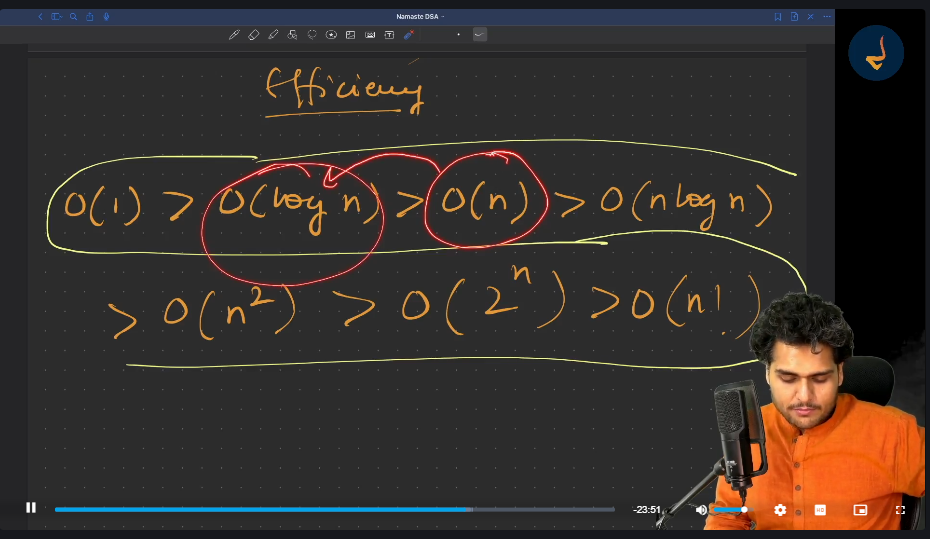 Namaste DSA
Efficiency
O(1) > O(log n) > O(n) > O(n log n)
> O(n²) > O(2ⁿ) > O(n!)
-23:51
HD